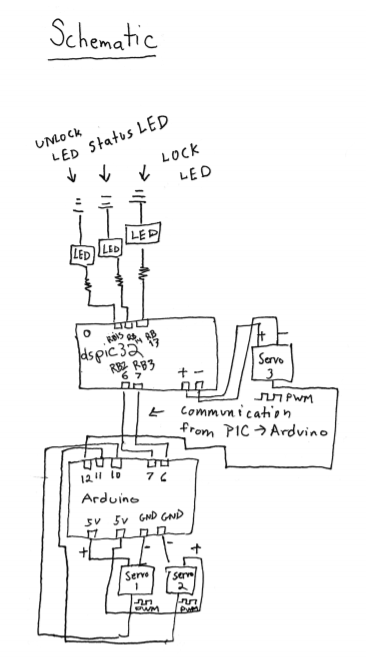 Schematic
UNLOCK
LED
Status LED
LOCK
LED
LED
LED
LED
RB15 RB14 RB13
dspic32
RB2 RB3
6 7
+ -
+ -
Servo
3
PWM
communication
from PIC → Arduino
12 11 10 7 6
Arduino
5V 5V GND GND
+ - - +
Servo
1
Servo
2
PWM
PWM